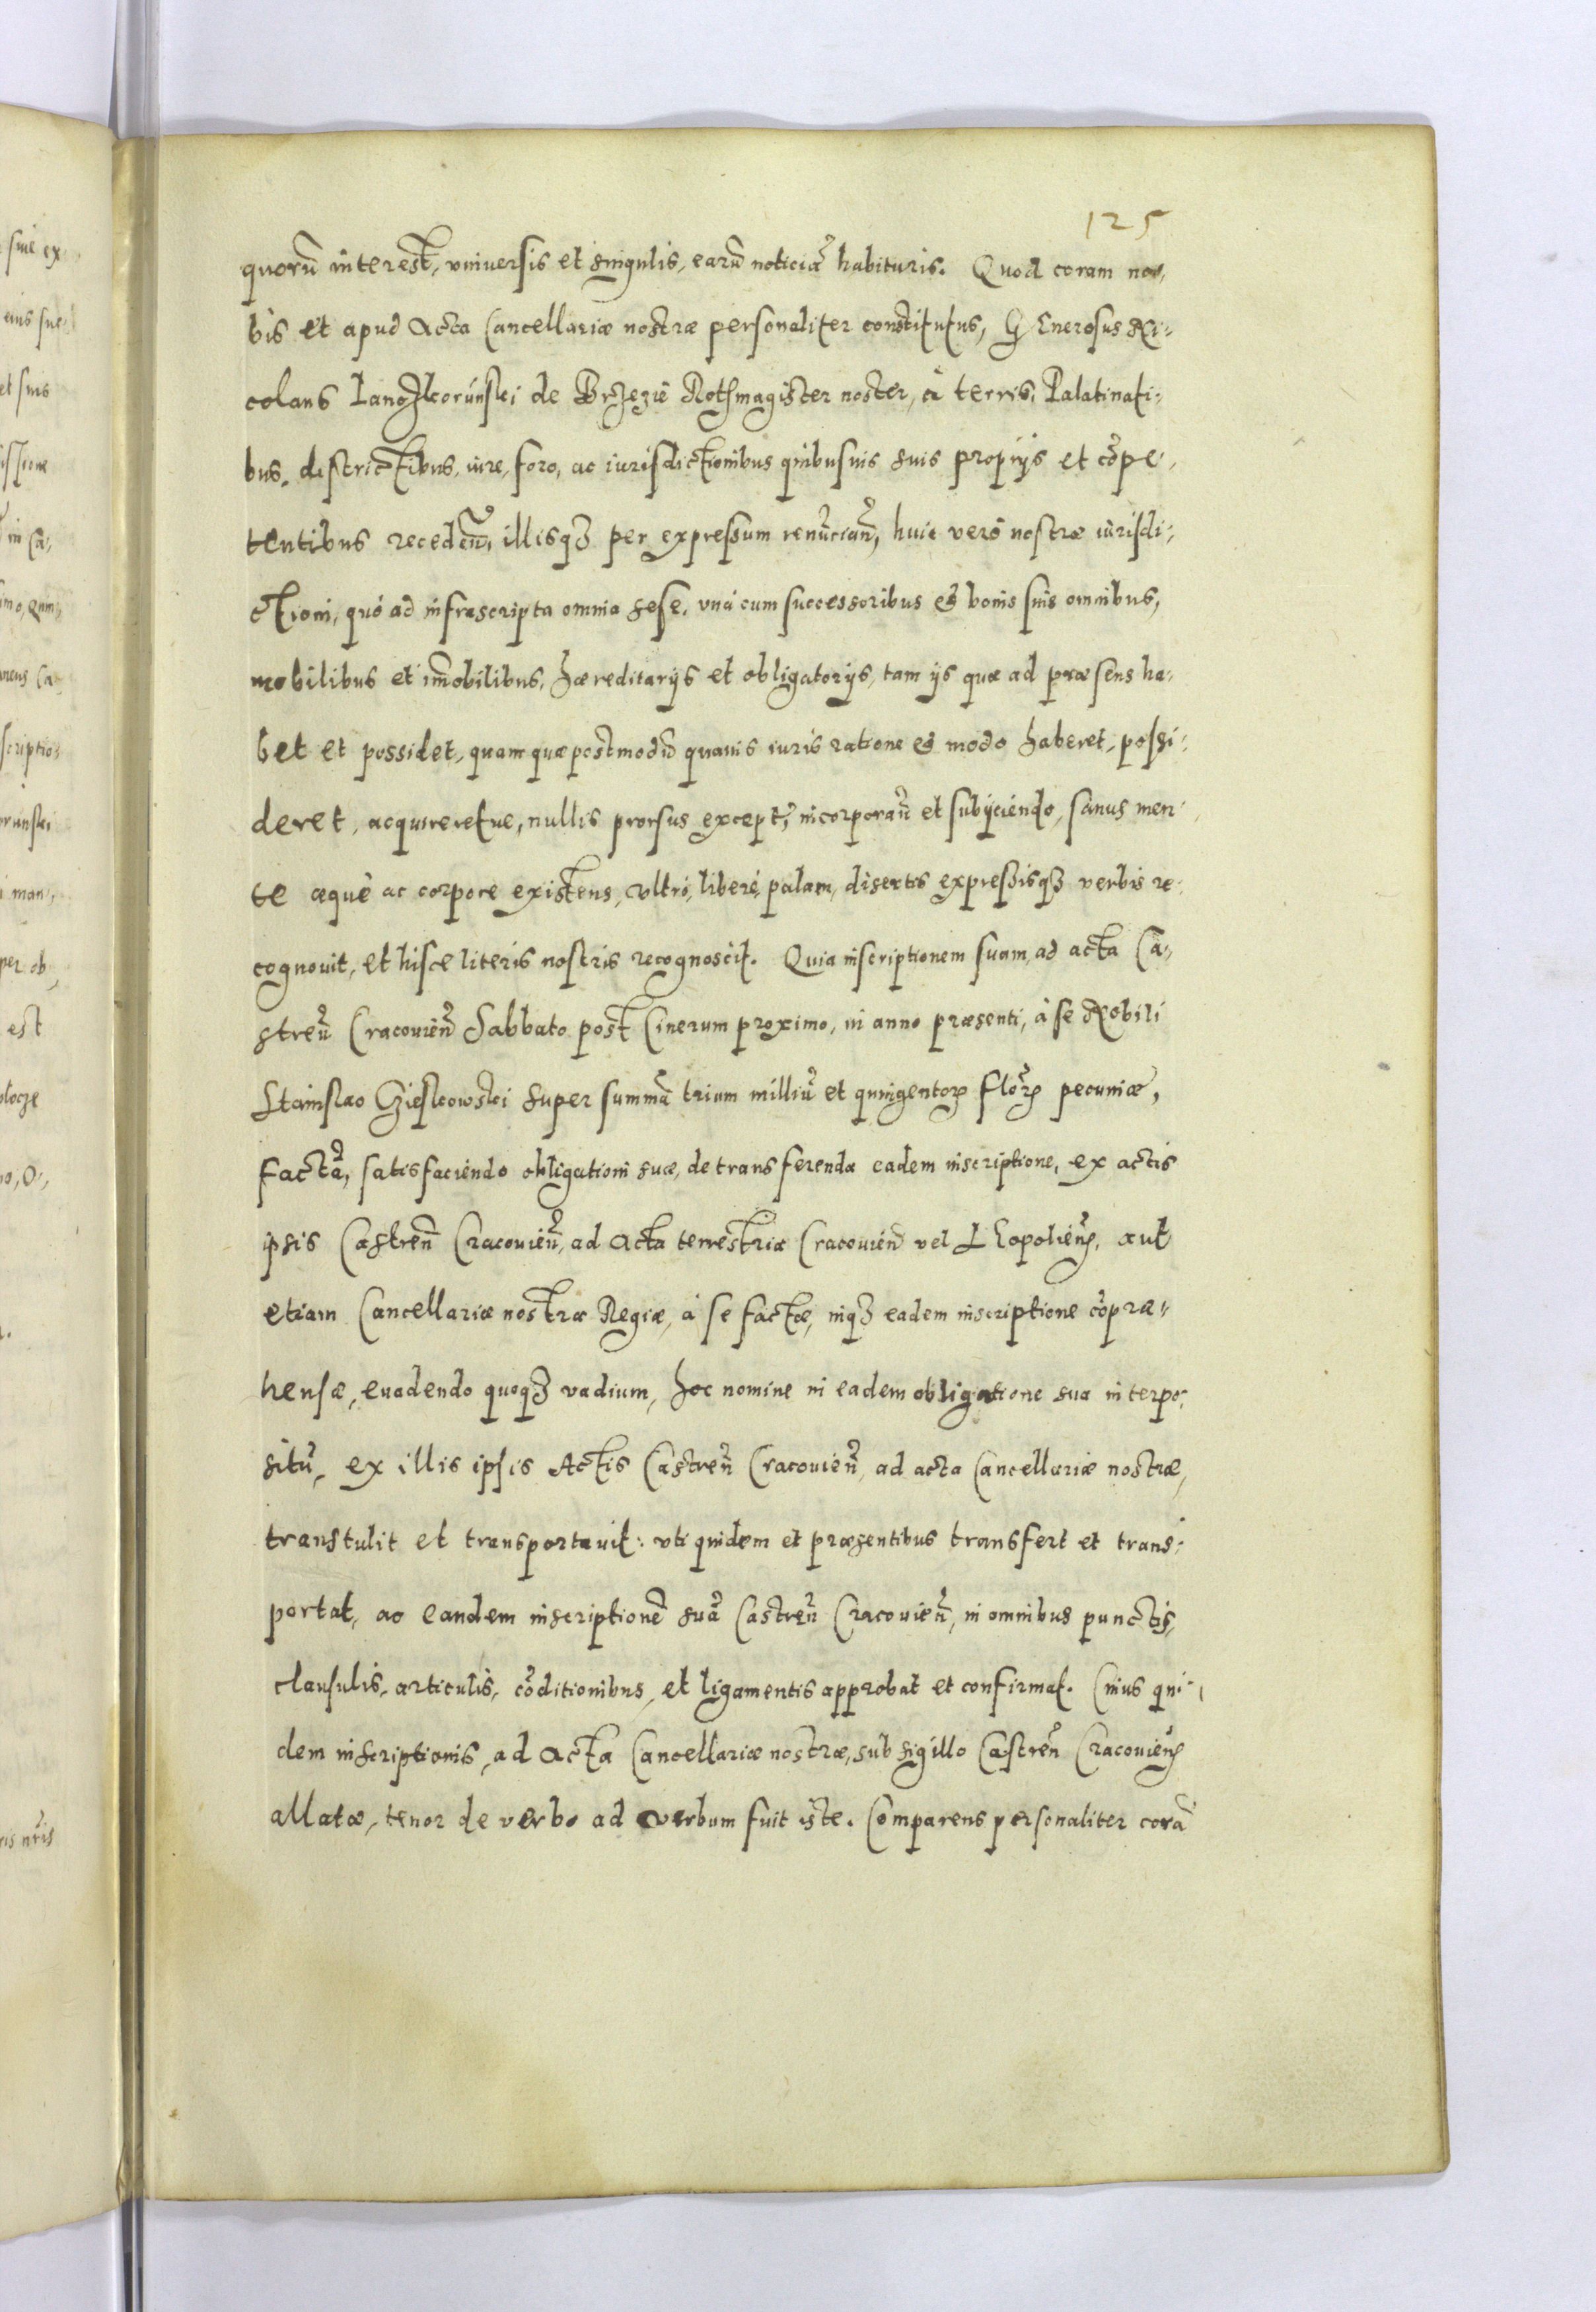 125
quorū interest, vniuersis et singulis, earū noticiā habituris. Quod coram no,
bis et apud Acta Cancellariæ nostræ personaliter constitutus, GEnerosus Ni,
colaus Lanczkorunski de Brzezie Rothmagister noster, à terris, Palatinati,
bus, districtibus, iure, foro, ac iurisdictionibus quibusuis suis proprijs et cōpe,
tentibus receden̄, illisqȝ per expressum renūcian̄, huic verò nostræ iurisdi,
ctioni, quó ad infrascripta omnia sese, vná cum successoribus et bonis suis omnibus,
mobilibus et im̄obilibus, hæreditarijs et obligatorijs, tam ijs quæ ad præsens ha,
bet et possidet, quam quæ postmodū quauis iuris ratione et modo haberet, possi,
deret, acquireretue, nullis prorsus except, incorporan̄ et subijciendo, sanus men,
te æquè ac corpore existens, vltró, liberé, palam, disertis expressisqȝ verbis re,
cognouit, et hisce literis nostris recognoscit. Quia inscriptionem suam, ad acta Ca,
stren̄ Cracouien̄ Sabbato post Cinerum proximo, in anno præsenti, à se Nobili
Stanislao Czieslkowski super summā trium milliū et quingentorꝫ florꝫ pecuniæ,
factā, satisfaciendo obligationi suæ, de transferenda eadem inscriptione, ex actis
ipsis Castren̄ Cracouien̄, ad Acta terrestria Cracouien̄ vel LEopolien̄, aut
etiam Cancellariæ nostræ Regiæ, à se factæ, inqȝ eadem inscriptione cōpræ,
hensæ, euadendo quoqȝ vadium, hoc nomine in eadem obligatione sua interpo,
sitū, ex illis ipsis Actis Castren̄ Cracouien̄, ad acta Cancellariæ nostræ,
transtulit et transportauit: vti quidem et præsentibus transfert et trans,
portat, ac eandem inscriptionē suā Castren̄ Cracouien̄, in omnibus punctis,
clausulis, articulis, cōditionibus, et ligamentis approbat et confirmat. Cuius qui,
dem inscriptionis, ad Acta Cancellariæ nostræ, sub sigillo Castren̄ Cracouien̄
allatæ, tenor de verbo ad verbum fuit iste. Comparens personaliter corā